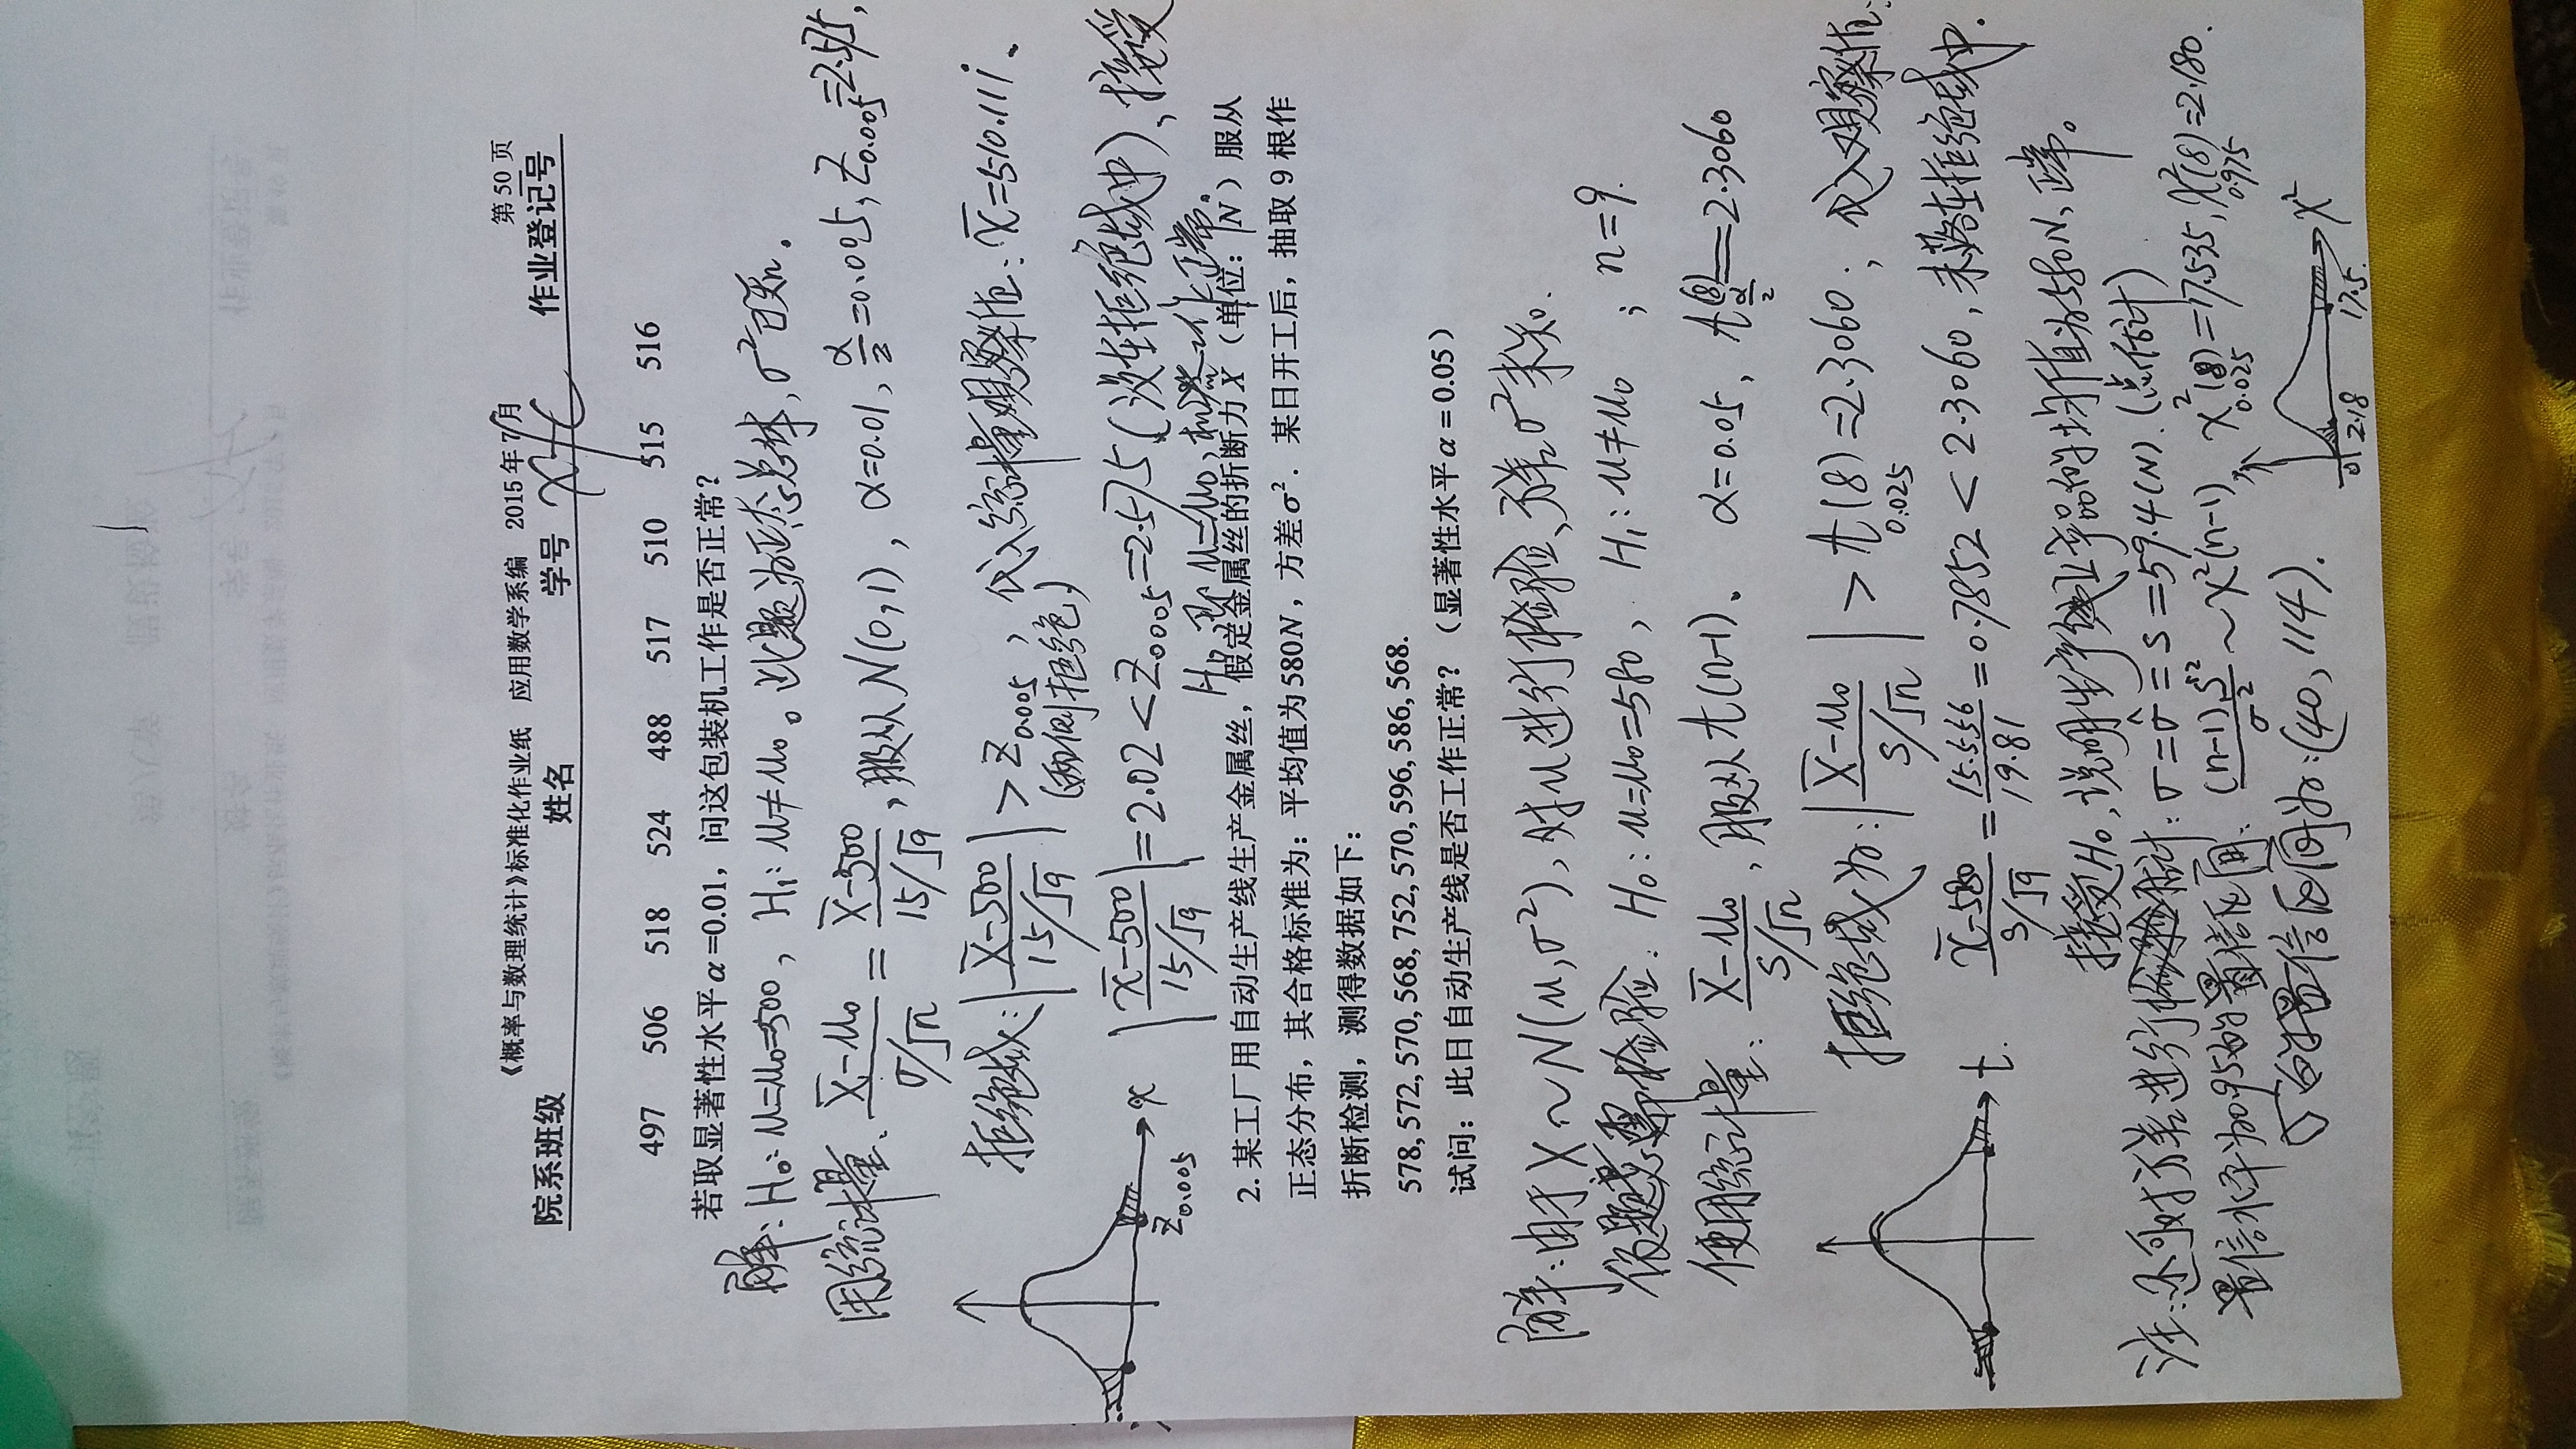 《概率与数理统计》标准化作业纸 应用数学系编 2015年7月 第50页
院系班级 姓名 学号 作业登记号
497 506 518 524 488 517 510 515 516
若取显著性水平α=0.01，问这包装机工作是否正常？
解：H₀：μ=μ₀=500，H₁：μ≠μ₀。此题为正态总体，σ²已知。
用统计量、(X̄-μ₀)/(σ/√n) = (X̄-500)/(15/√9)，服从N(0,1)，α=0.01，α/2=0.005，Z₀.₀₀₅=2.575，
拒绝域：|(X̄-500)/(15/√9)| > Z₀.₀₀₅，代入统计量观察值：x̄=510.111、
(两侧拒绝)
|(x̄-500)/(15/√9)|=2.02<Z₀.₀₀₅=2.575（没在拒绝域中）、接受
H₀，即μ=μ₀，工作正常。
Z₀.₀₀₅ x
2. 某工厂用自动生产线生产金属丝，假定金属丝的折断力X（单位：N）服从
正态分布，其合格标准为：平均值为580N，方差σ². 某日开工后，抽取9根作
折断检测，测得数据如下：
578, 572, 570, 568, 752, 570, 596, 586, 568.
试问：此日自动生产线是否工作正常？（显著性水平α=0.05）
解：由于X~N(μ,σ²)，对μ进行检验、方差σ²未知.
依题意，检验：H₀：μ=μ₀=580，H₁：μ≠μ₀；n=9.
使用统计量：(X̄-μ₀)/(S/√n)，服从t(n-1)、α=0.05，t_{α/2}(8)=2.3060
拒绝域为：|(X̄-μ₀)/(S/√n)| > t₀.₀₂₅(8)=2.3060，代入观察值：
(x̄-580)/(S/√9) = 15.5556/19.81 = 0.7852 < 2.3060，未落在拒绝域中.
t.
接受H₀，说明生产线正常的均值为580N，正常。
注：还可对方差进行估计：σ=σ̂=S=59.4(N).（点估计）
置信水平为0.95的置信区间：(n-1)S²/σ² ~ χ²(n-1)、χ²₀.₀₂₅(8)=17.535，χ²₀.₉₇₅(8)=2.180.
σ的置信区间为：(40, 114).
0 2.18 17.5 χ²